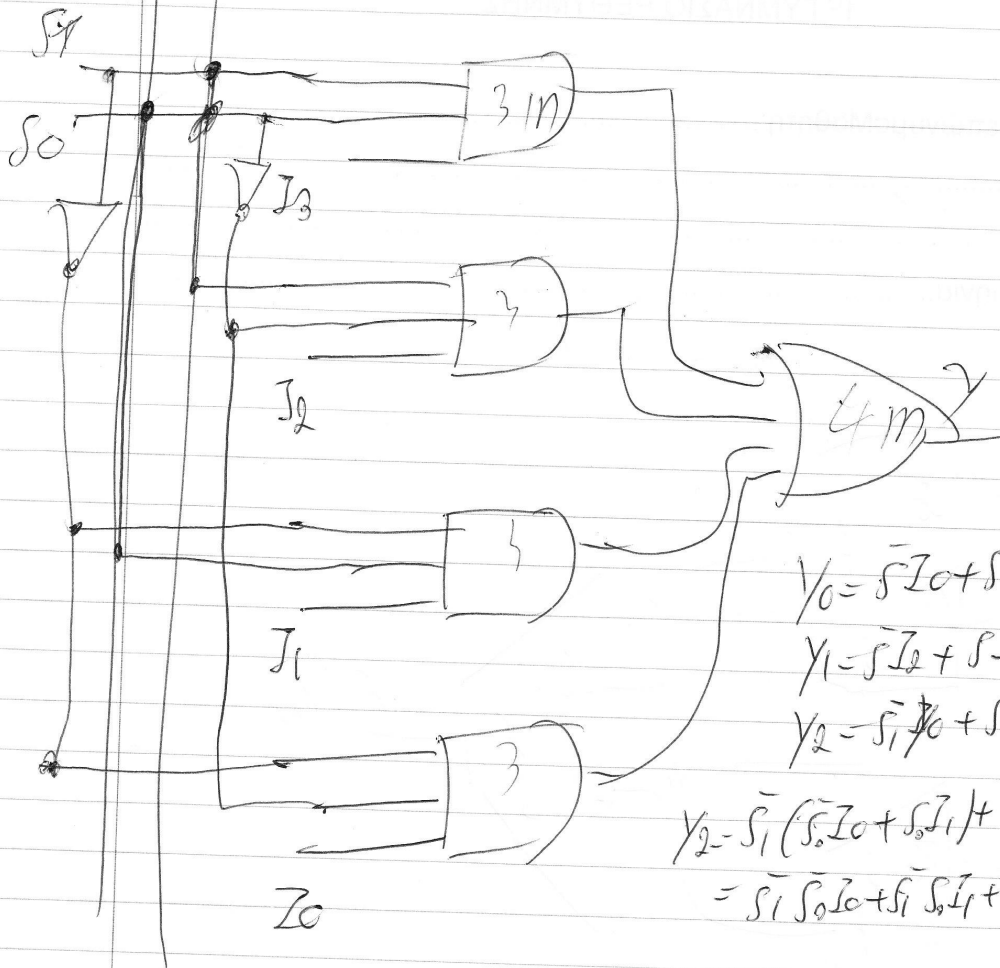 S1
S0
3 in
I3
3
I2
4 in
Y
3
I1
3
I0
Y0 = S̄I0 + S
Y1 = S̄I2 + S
Y2 = S̄1Y0 + S
Y2 = S̄1(S̄0I0 + S0I1) +
= S̄1 S̄0I0 + S̄1 S0I1 +